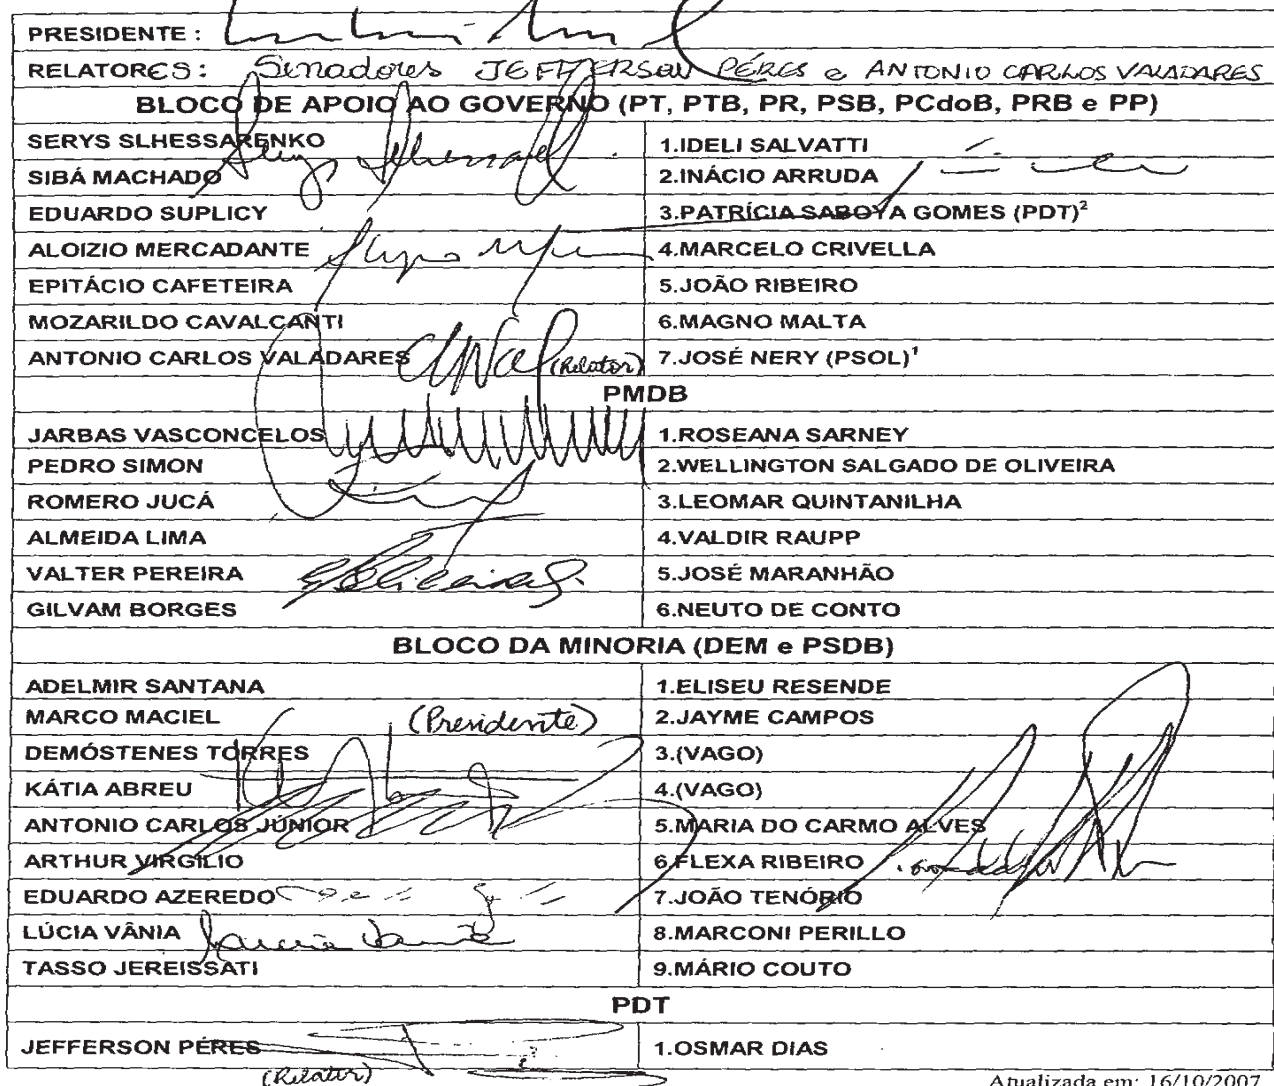 PRESIDENTE :
RELATORES: Senadores JEFFERSON PÉRES e ANTONIO CARLOS VALADARES
BLOCO DE APOIO AO GOVERNO (PT, PTB, PR, PSB, PCdoB, PRB e PP)
SERYS SLHESSARENKO 1.IDELI SALVATTI
SIBÁ MACHADO 2.INÁCIO ARRUDA
EDUARDO SUPLICY 3.PATRÍCIA SABOYA GOMES (PDT)²
ALOIZIO MERCADANTE 4.MARCELO CRIVELLA
EPITÁCIO CAFETEIRA 5.JOÃO RIBEIRO
MOZARILDO CAVALCANTI 6.MAGNO MALTA
ANTONIO CARLOS VALADARES (Relator) 7.JOSÉ NERY (PSOL)¹
PMDB
JARBAS VASCONCELOS 1.ROSEANA SARNEY
PEDRO SIMON 2.WELLINGTON SALGADO DE OLIVEIRA
ROMERO JUCÁ 3.LEOMAR QUINTANILHA
ALMEIDA LIMA 4.VALDIR RAUPP
VALTER PEREIRA 5.JOSÉ MARANHÃO
GILVAM BORGES 6.NEUTO DE CONTO
BLOCO DA MINORIA (DEM e PSDB)
ADELMIR SANTANA 1.ELISEU RESENDE
MARCO MACIEL (Presidente) 2.JAYME CAMPOS
DEMÓSTENES TORRES 3.(VAGO)
KÁTIA ABREU 4.(VAGO)
ANTONIO CARLOS JÚNIOR 5.MARIA DO CARMO ALVES
ARTHUR VIRGÍLIO 6.FLEXA RIBEIRO
EDUARDO AZEREDO 7.JOÃO TENÓRIO
LÚCIA VÂNIA Lúcia Vânia 8.MARCONI PERILLO
TASSO JEREISSATI 9.MÁRIO COUTO
PDT
JEFFERSON PÉRES 1.OSMAR DIAS
(Relator)
Atualizada em: 16/10/2007